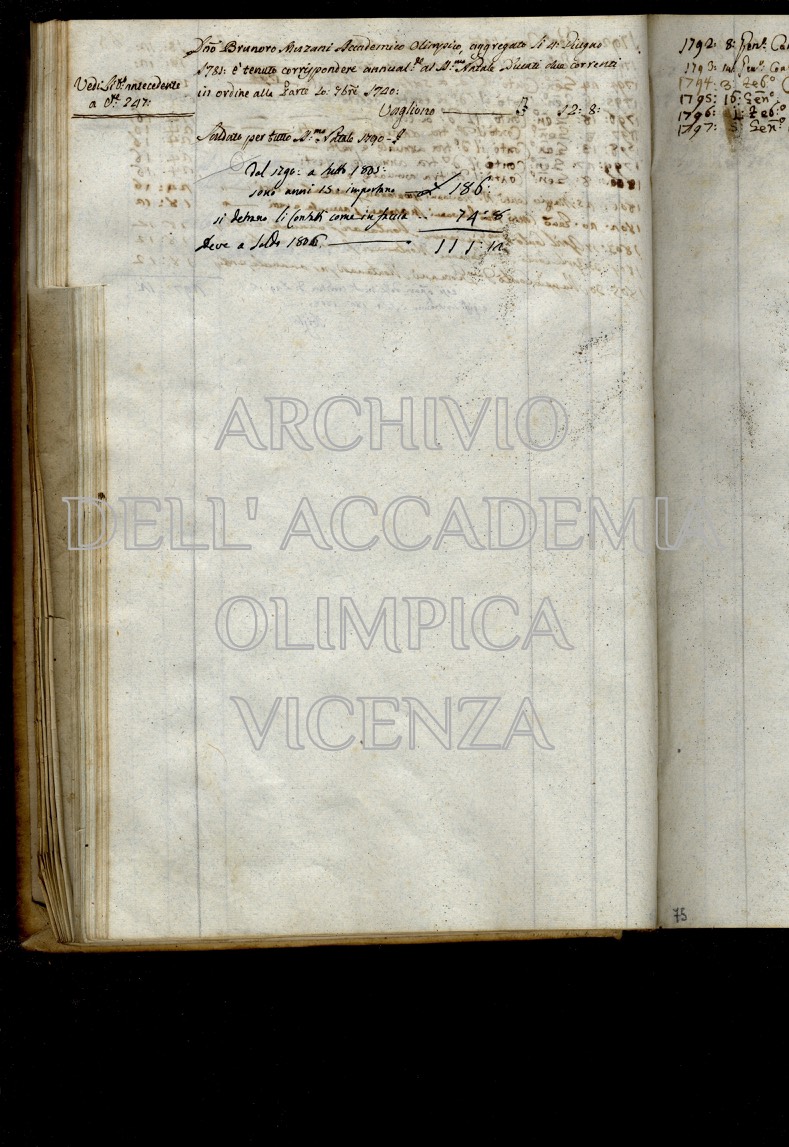 Vedi Lib.º antecedente
a C.te 247:
Dño Brunoro Muzani Accademico Olimpico, aggregato li 4: Giugno
1781: è tenuto corrispondere annual.te al S.mo Natale Ducati due correnti
in ordine alla Parte 20: 7bre 1740:
Vagliono 12: 8:
Saldato per tutto S.mo Natale 1790
Dal 1790: a tutto 1805:
sono anni 15: importano 186:
si detrano li Contati come in facciata 74: 8
Deve a Saldo 1806. 111: 12
1792: 8: Gen.º
1793: Gen.º
1794: 3: Feb.º
1795: 16: Gen.º
1796: 1: Feb.º
1797: 5: Gen.º
75
ARCHIVIO
DELL' ACCADEMIA
OLIMPICA
VICENZA